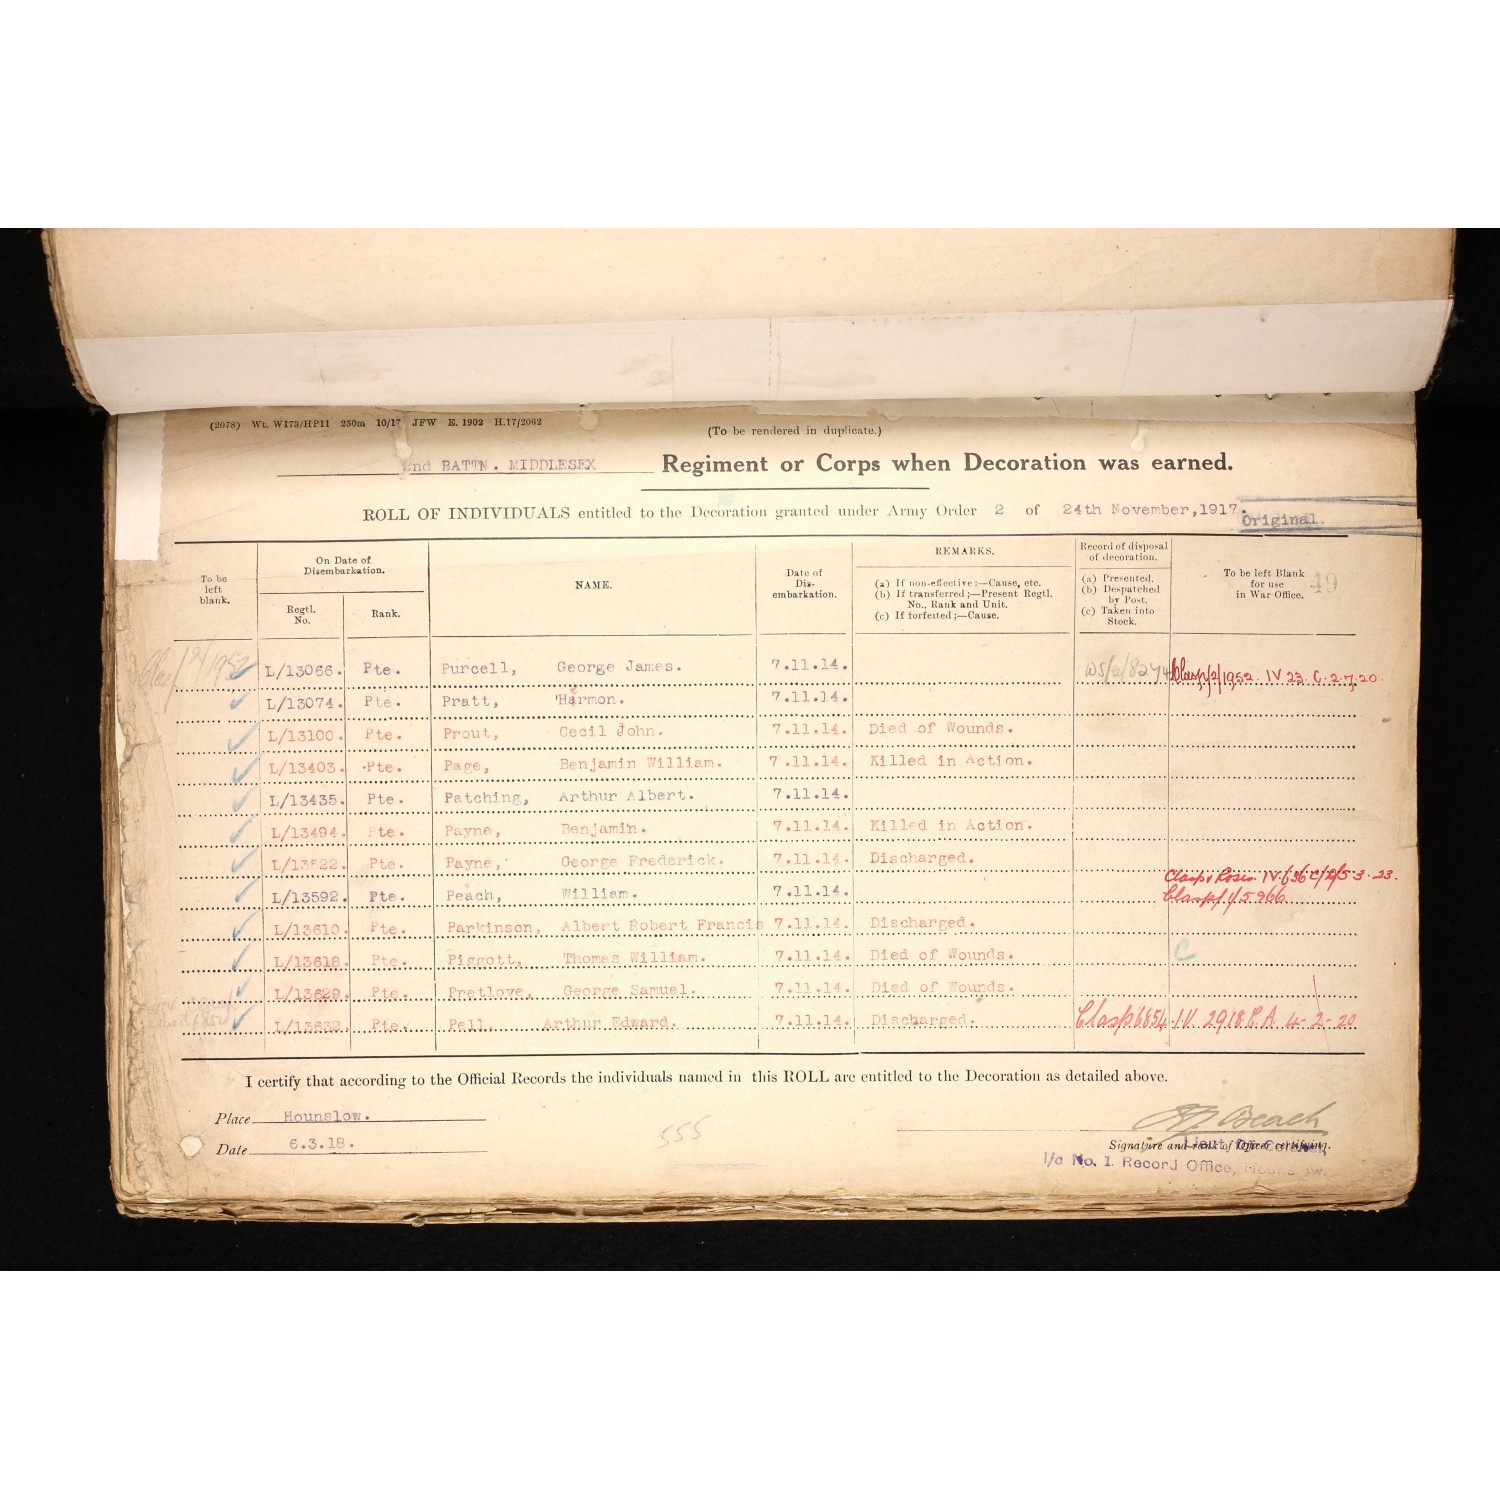 (2078) Wt. W173/HP11 250m 10/17 JFW E. 1902 H.17/2062
(To be rendered in duplicate.)
2nd BATTN. MIDDLESEX Regiment or Corps when Decoration was earned.
ROLL OF INDIVIDUALS entitled to the Decoration granted under Army Order 2 of 24th November, 1917.
Original.
To be left blank.
On Date of Disembarkation.
Regtl. No.
Rank.
NAME.
Date of Dis-embarkation.
REMARKS.
(a) If non-effective:—Cause, etc.
(b) If transferred;—Present Regtl. No., Rank and Unit.
(c) If forfeited;—Cause.
Record of disposal of decoration.
(a) Presented.
(b) Despatched by Post.
(c) Taken into Stock.
To be left Blank for use in War Office.
49
L/13066. Pte. Purcell, George James. 7.11.14. Clasp/2/1952 IV 23 C. 2.7.20.
L/13074. Pte. Pratt, Harmon. 7.11.14.
L/13100. Pte. Prout, Cecil John. 7.11.14. Died of Wounds.
L/13403. Pte. Page, Benjamin William. 7.11.14. Killed in Action.
L/13435. Pte. Patching, Arthur Albert. 7.11.14.
L/13494. Pte. Payne, Benjamin. 7.11.14. Killed in Action.
L/13522. Pte. Payne, George Frederick. 7.11.14. Discharged.
Clasp & Roses IV/636 C/2/5.3.23.
L/13592. Pte. Peach, William. 7.11.14. Clasp/1/5966
L/13610. Pte. Parkinson, Albert Robert Francis 7.11.14. Discharged.
L/13618. Pte. Piggott, Thomas William. 7.11.14. Died of Wounds. C
L/13629. Pte. Pretlove, George Samuel. 7.11.14. Died of Wounds.
L/13632. Pte. Pell, Arthur Edward. 7.11.14. Discharged. Clasp 6854 IV. 2918 R.A 4-2-20
I certify that according to the Official Records the individuals named in this ROLL are entitled to the Decoration as detailed above.
Place Hounslow.
Date 6.3.18.
555
Beach
Signature and rank of Officer certifying.
I/c No. 1. Record Office, Hounslow.